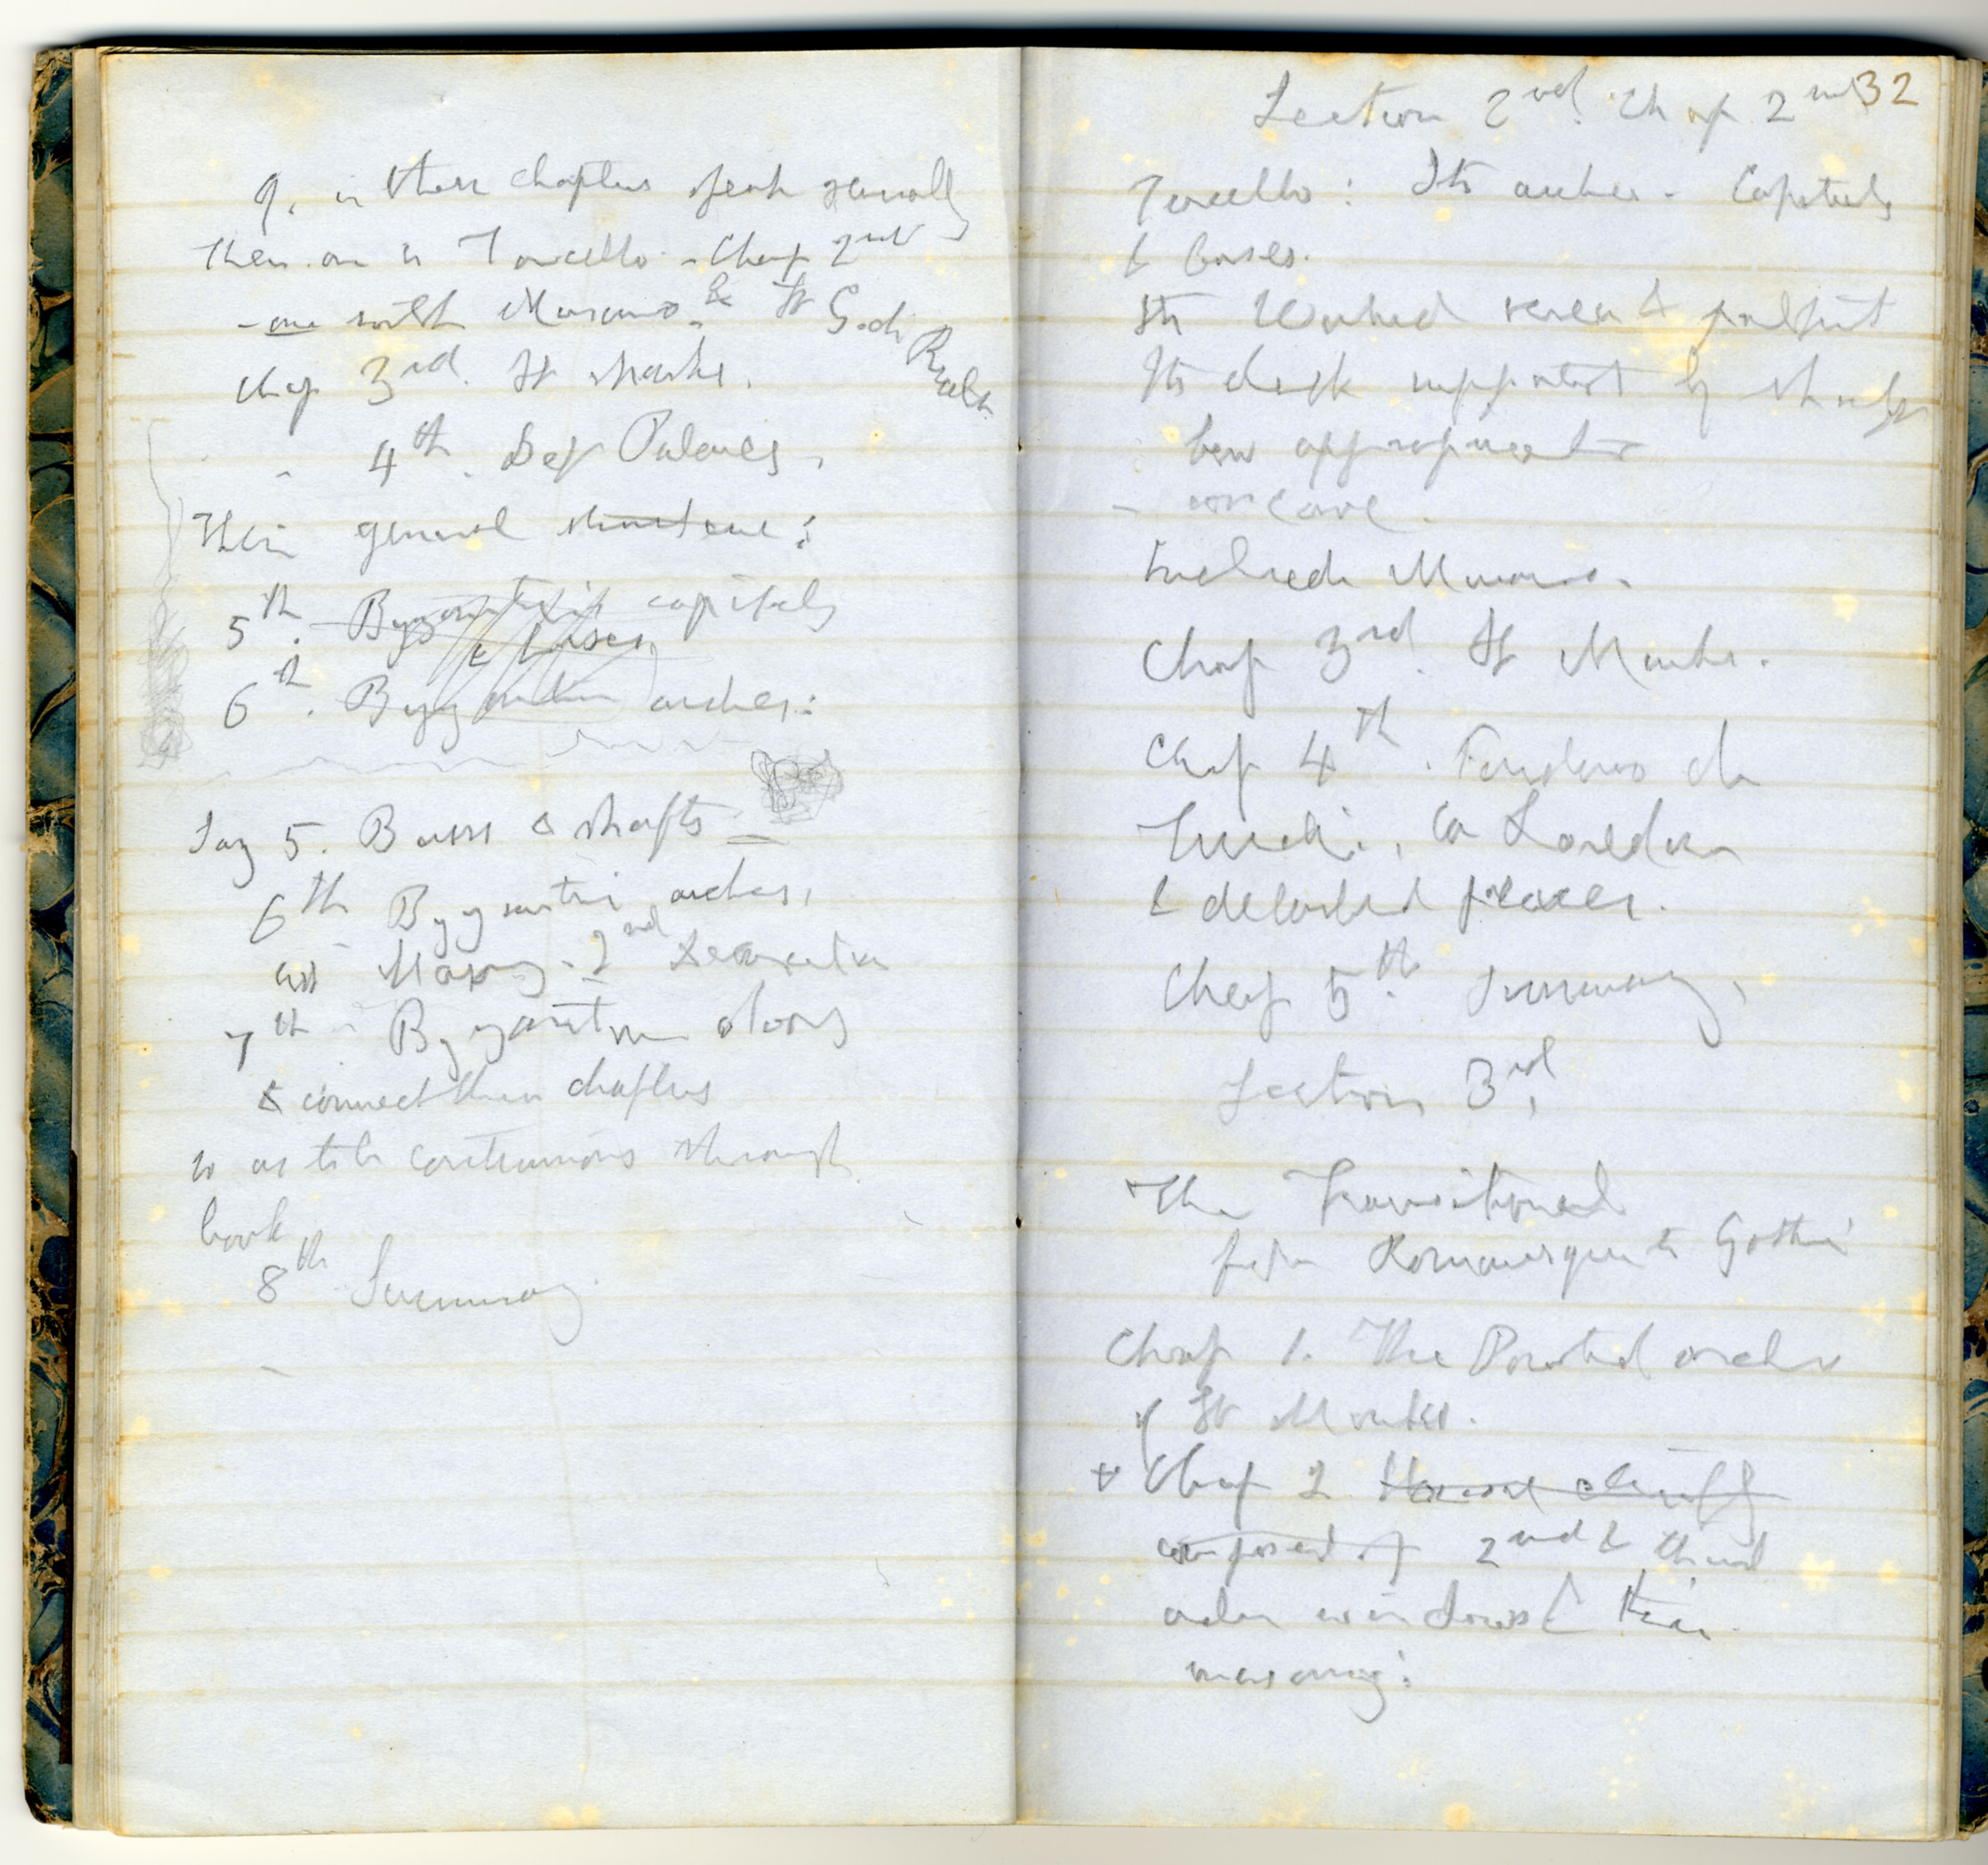 Q. in these chapters speak generally
then. one is Torcello - Chap 2nd
- one with Murano. & St G. di Rialto
chap 3rd. St Marks.
" 4th. Byz Palaces,
Their general structure:
5th. Byzantine capitals
& bases,
6th. Byzantine arches:
Say 5. Bases & shafts
6th Byzantine arches,
1st Masonry. 2nd Decoration
7th - Byzantine doors
& connect these chapters
so as to be continuous through
book
8th Summary.
32
Section 2nd. Chap 2nd
Torcello: Its arches - Capitals
& bases.
Its screen & pulpit
Its desk supported by shafts
how appropriate
- concave.
Include Murano.
Chap 3rd. St Marks.
Chap 4th. Fondaco de
Turchi, Ca Loredan
& detached pieces.
Chap 5th. Summary,
Section 3rd,
The Transitional
from Romanesque to Gothic
Chap 1. The Pointed arches
of St Marks.
+ Chap 2 chiefly
composed of 2nd & third
order windows & their
masonry: